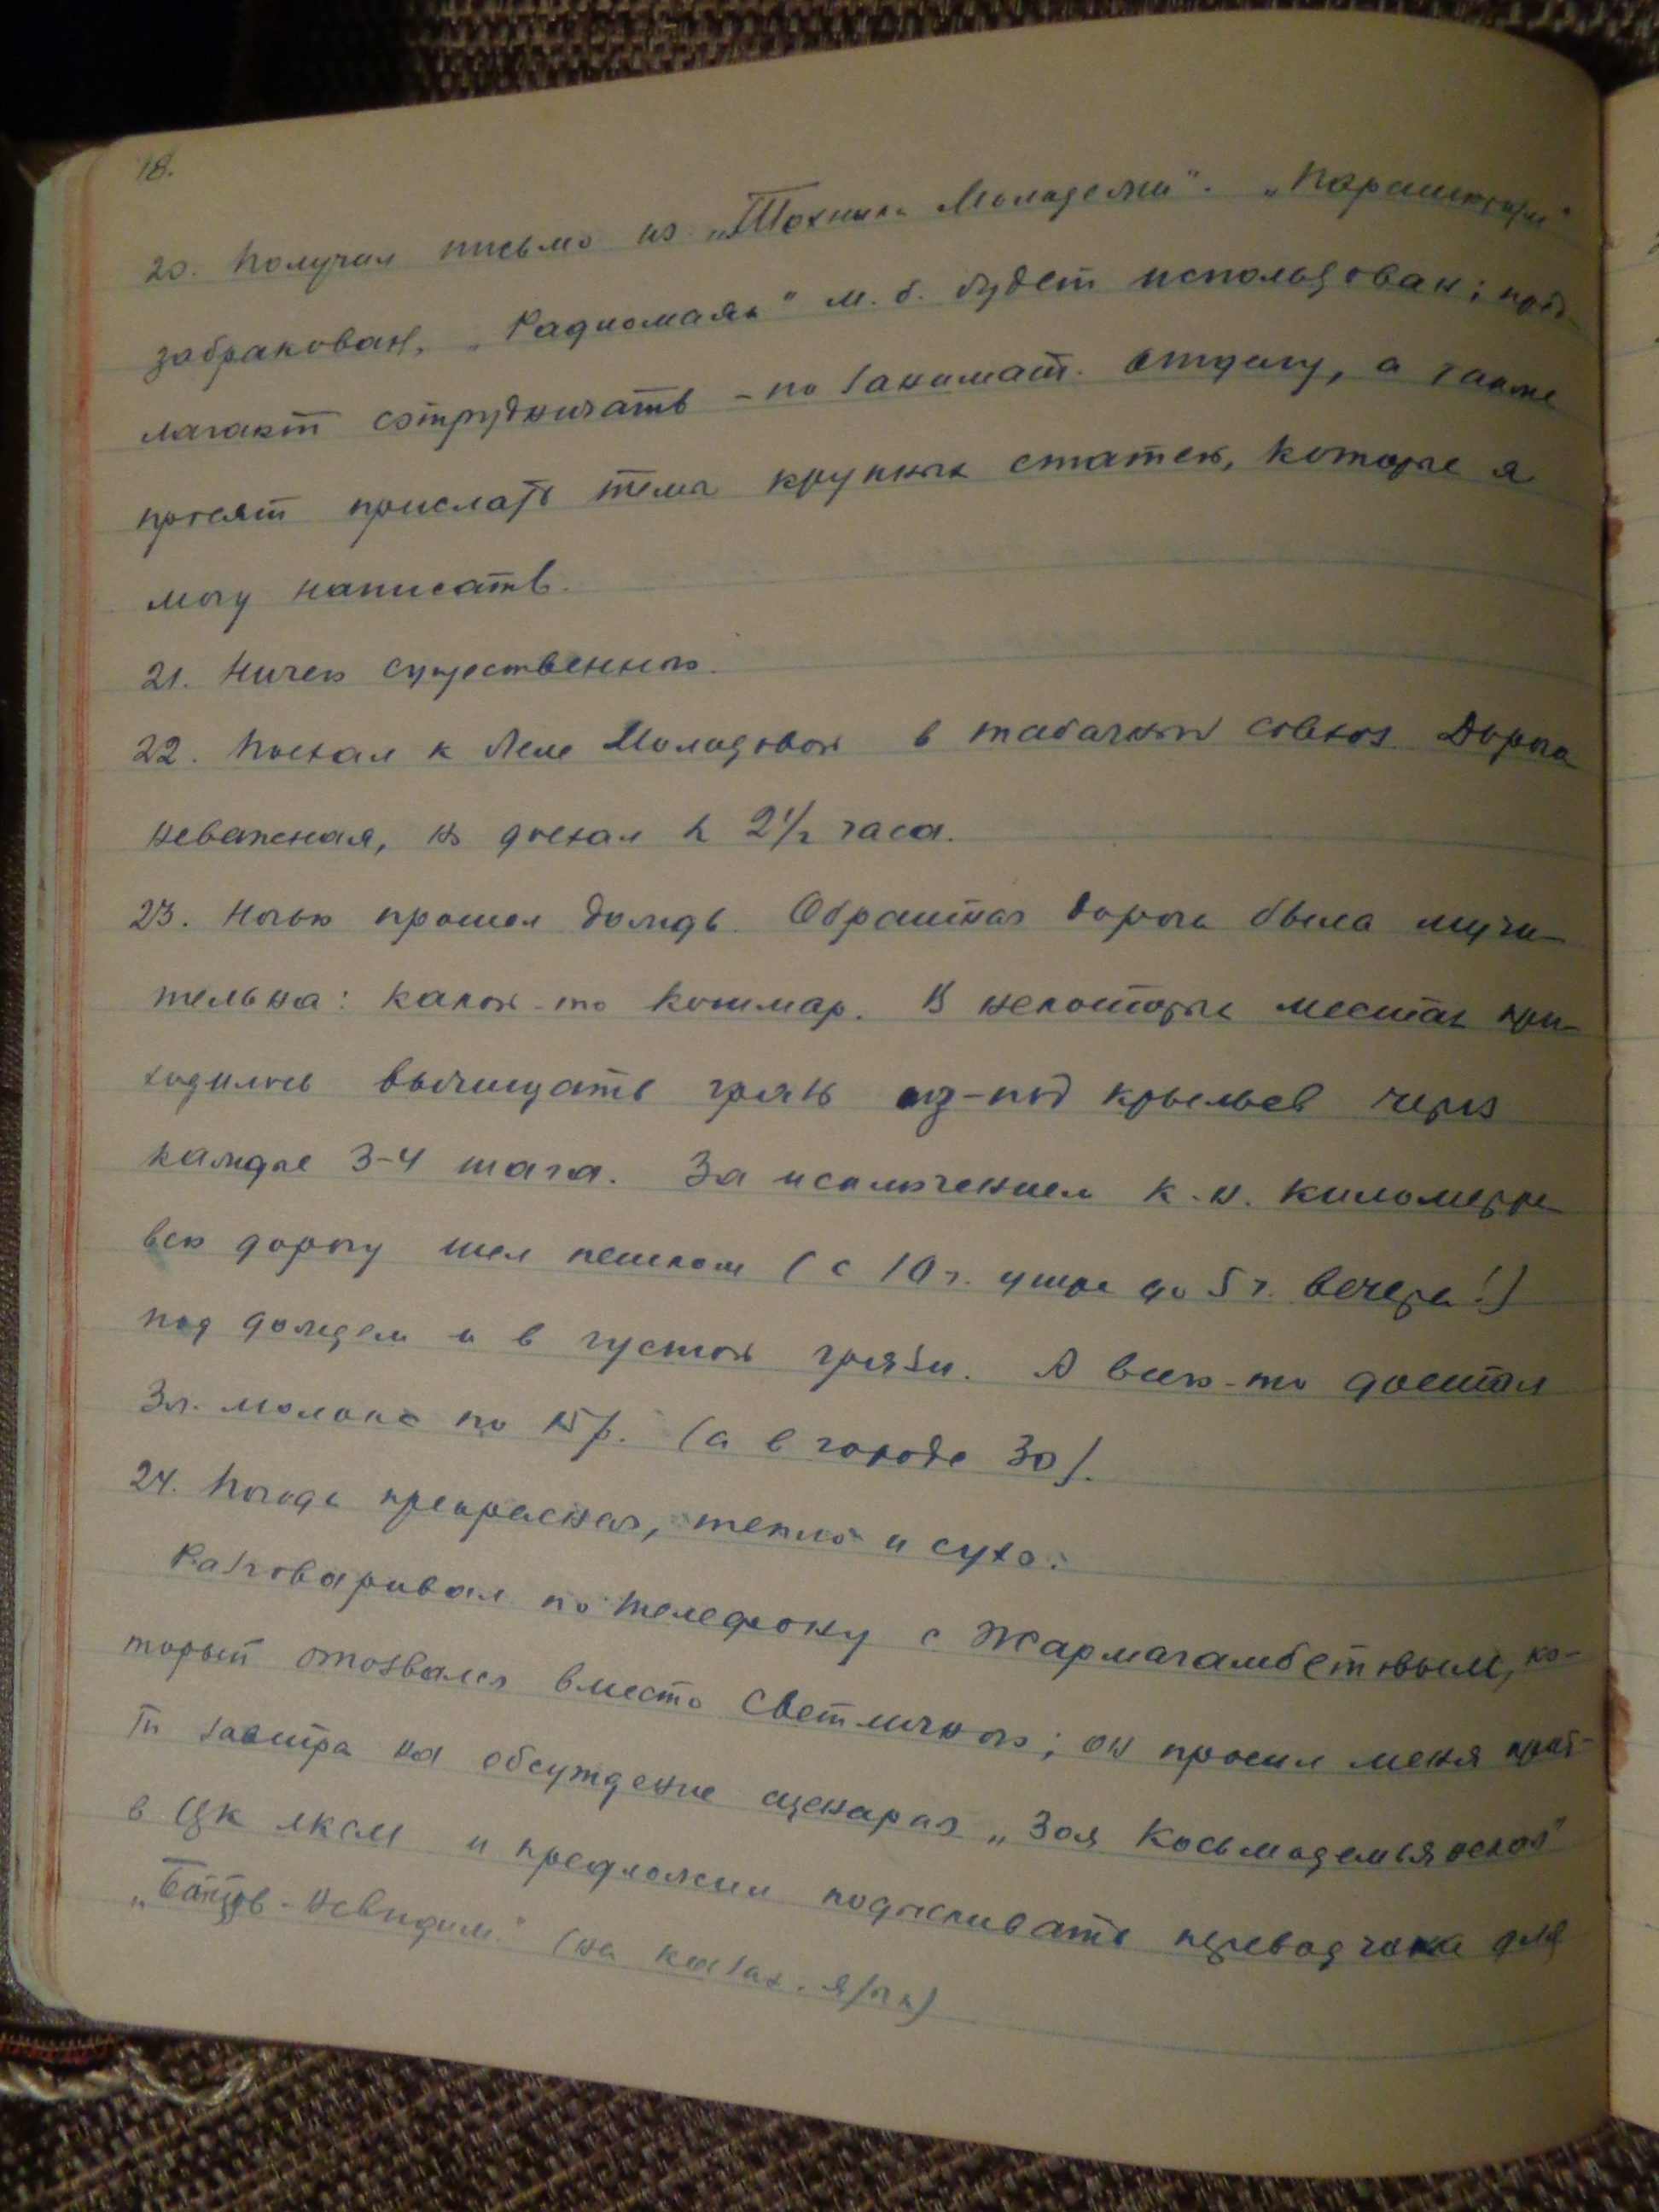 18.
20. Получил письмо из „Техники Молодежи". „Парашюты"
забракован, „Радиомаяк" м. б. будет использован; пред-
лагают сотрудничать – по занимат. отделу, а также
просят прислать темы крупных статей, которые я
могу написать.
21. Ничего существенного.
22. Поехал к Леле Молодовой в табачный совхоз. Дорога
неважная, но доехал в 2 1/2 часа.
23. Ночью прошел дождь. Обратная дорога была мучи-
тельна: какой-то кошмар. В некоторых местах при-
ходилось вычищать грязь из-под крыльев через
каждые 3-4 шага. За исключением к.-н. километра
всю дорогу шел пешком (с 10 ч. утра до 5 ч. вечера!)
под дождем и в густой грязи. А всего-то достал
3 л. молока по 15 р. (а в городе 30).
24. Погода прекрасная, тепло и сухо.
Разговаривал по телефону с Жармагамбетовым, ко-
торый отозвался вместо Светличного; он просил меня прий-
ти завтра на обсуждение сценария „Зоя Космодемьянская"
в ЦК ЛКСМ и предложил подыскивать переводчика для
„Бойцов-невидим." (на казах. язык)